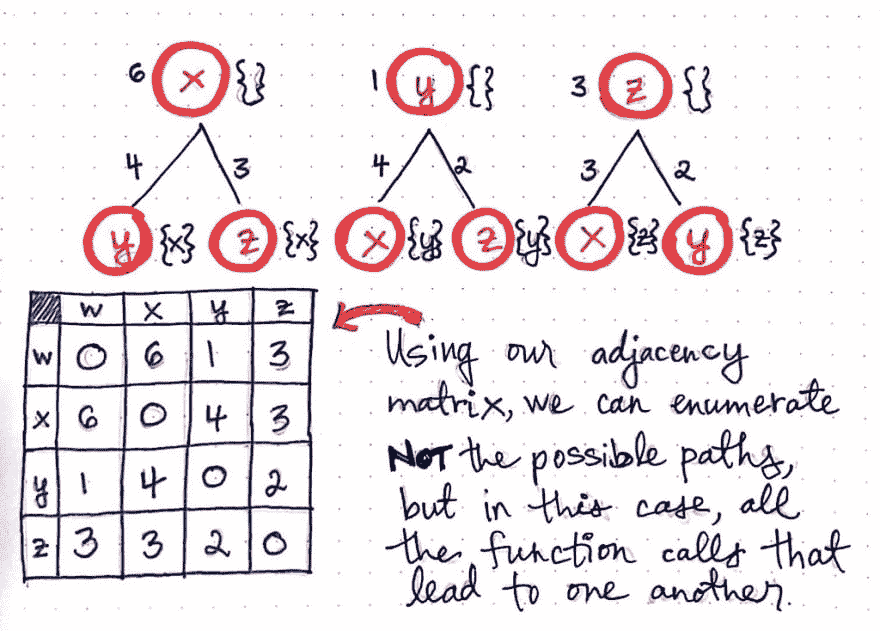 6 x {} 1 y {} 3 z {}
4 3 4 2 3 2
y {x} z {x} x {y} z {y} x {z} y {z}
w x y z
w 0 6 1 3
x 6 0 4 3
y 1 4 0 2
z 3 3 2 0
Using our adjacency
matrix, we can enumerate
NOT the possible paths,
but in this case, all
the function calls that
lead to one another.